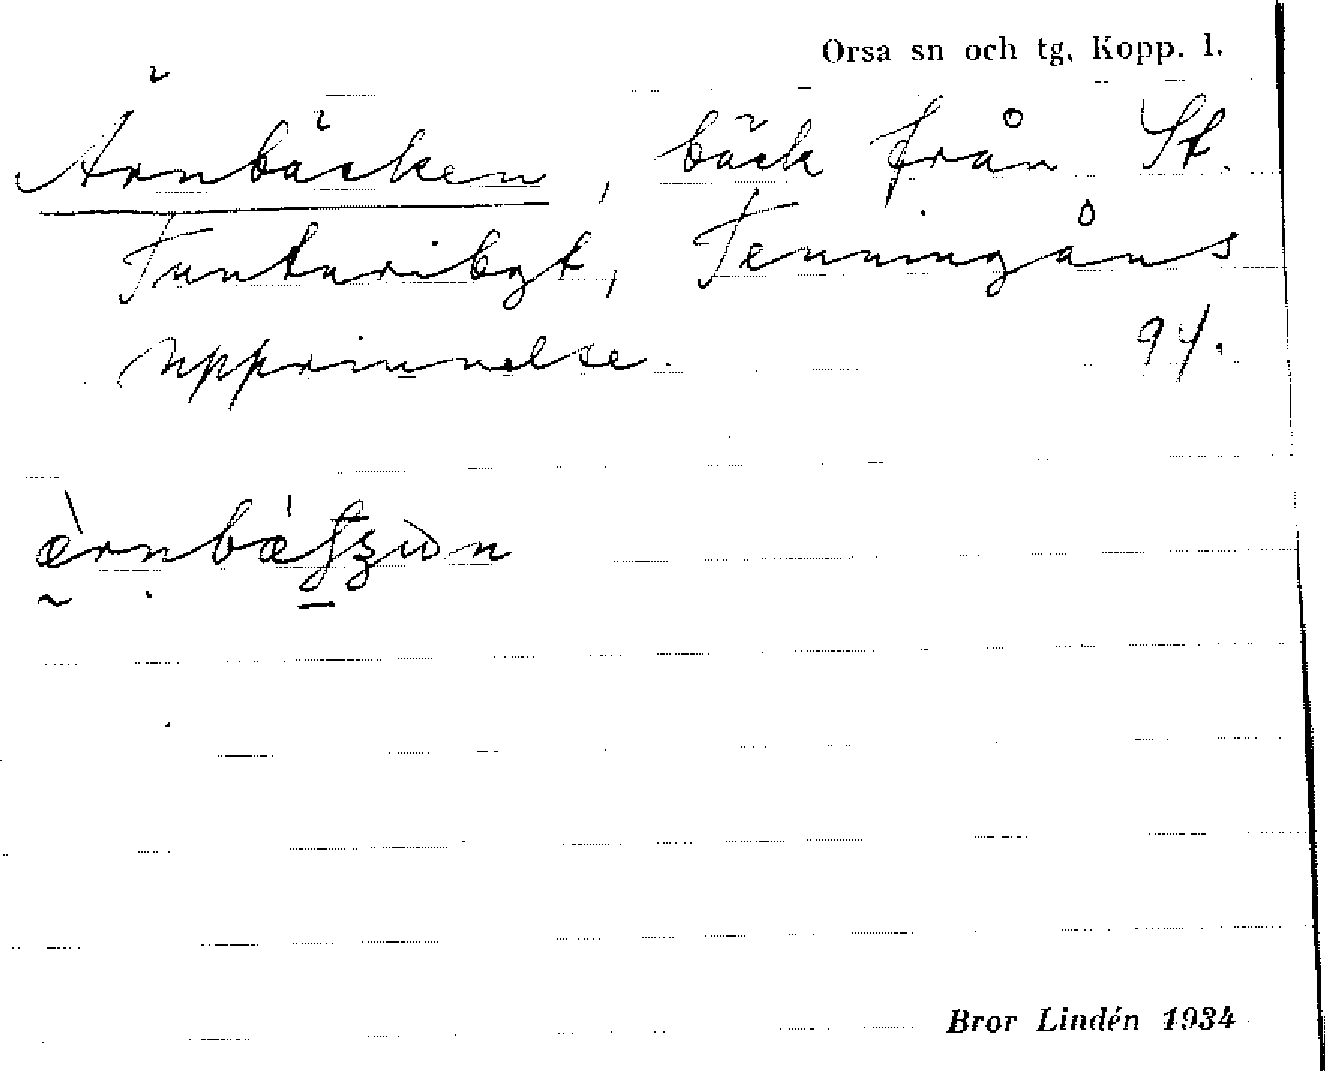 Orsa sn och tg, Kopp. l.
Ärnbäcken, bäck från St.
Tunturibgt, Tenningåns
upprinnelse. 94.
Bror Lindén 1934